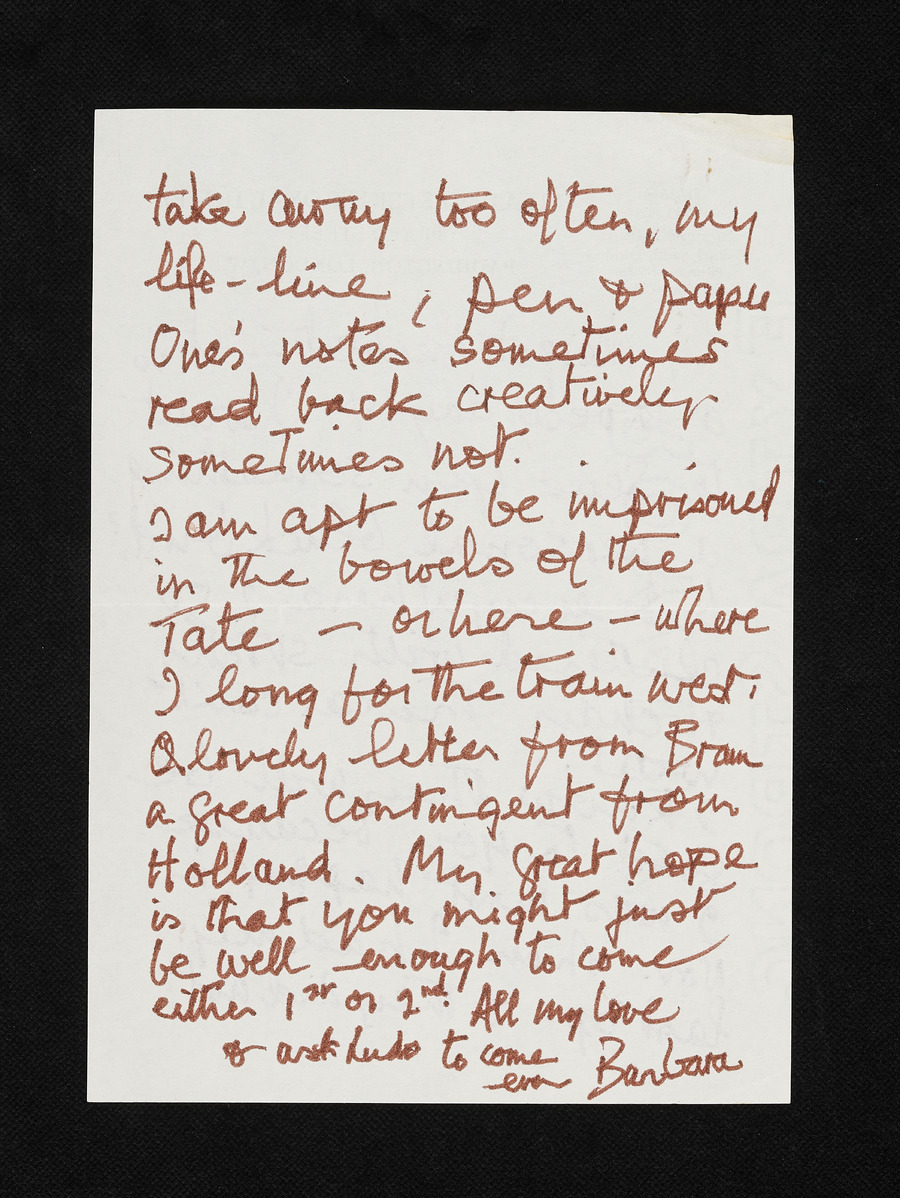 take away too often, my
life-line, pen & paper
One's notes sometimes
read back creatively
sometimes not.
I am apt to be imprisoned
in the bowels of the
Tate – or here – where
I long for the train west.
A lovely letter from Bram
a great contingent from
Holland. My great hope
is that you might just
be well enough to come
either 1st or 2nd. All my love
& ask Ludo to come
ever Barbara